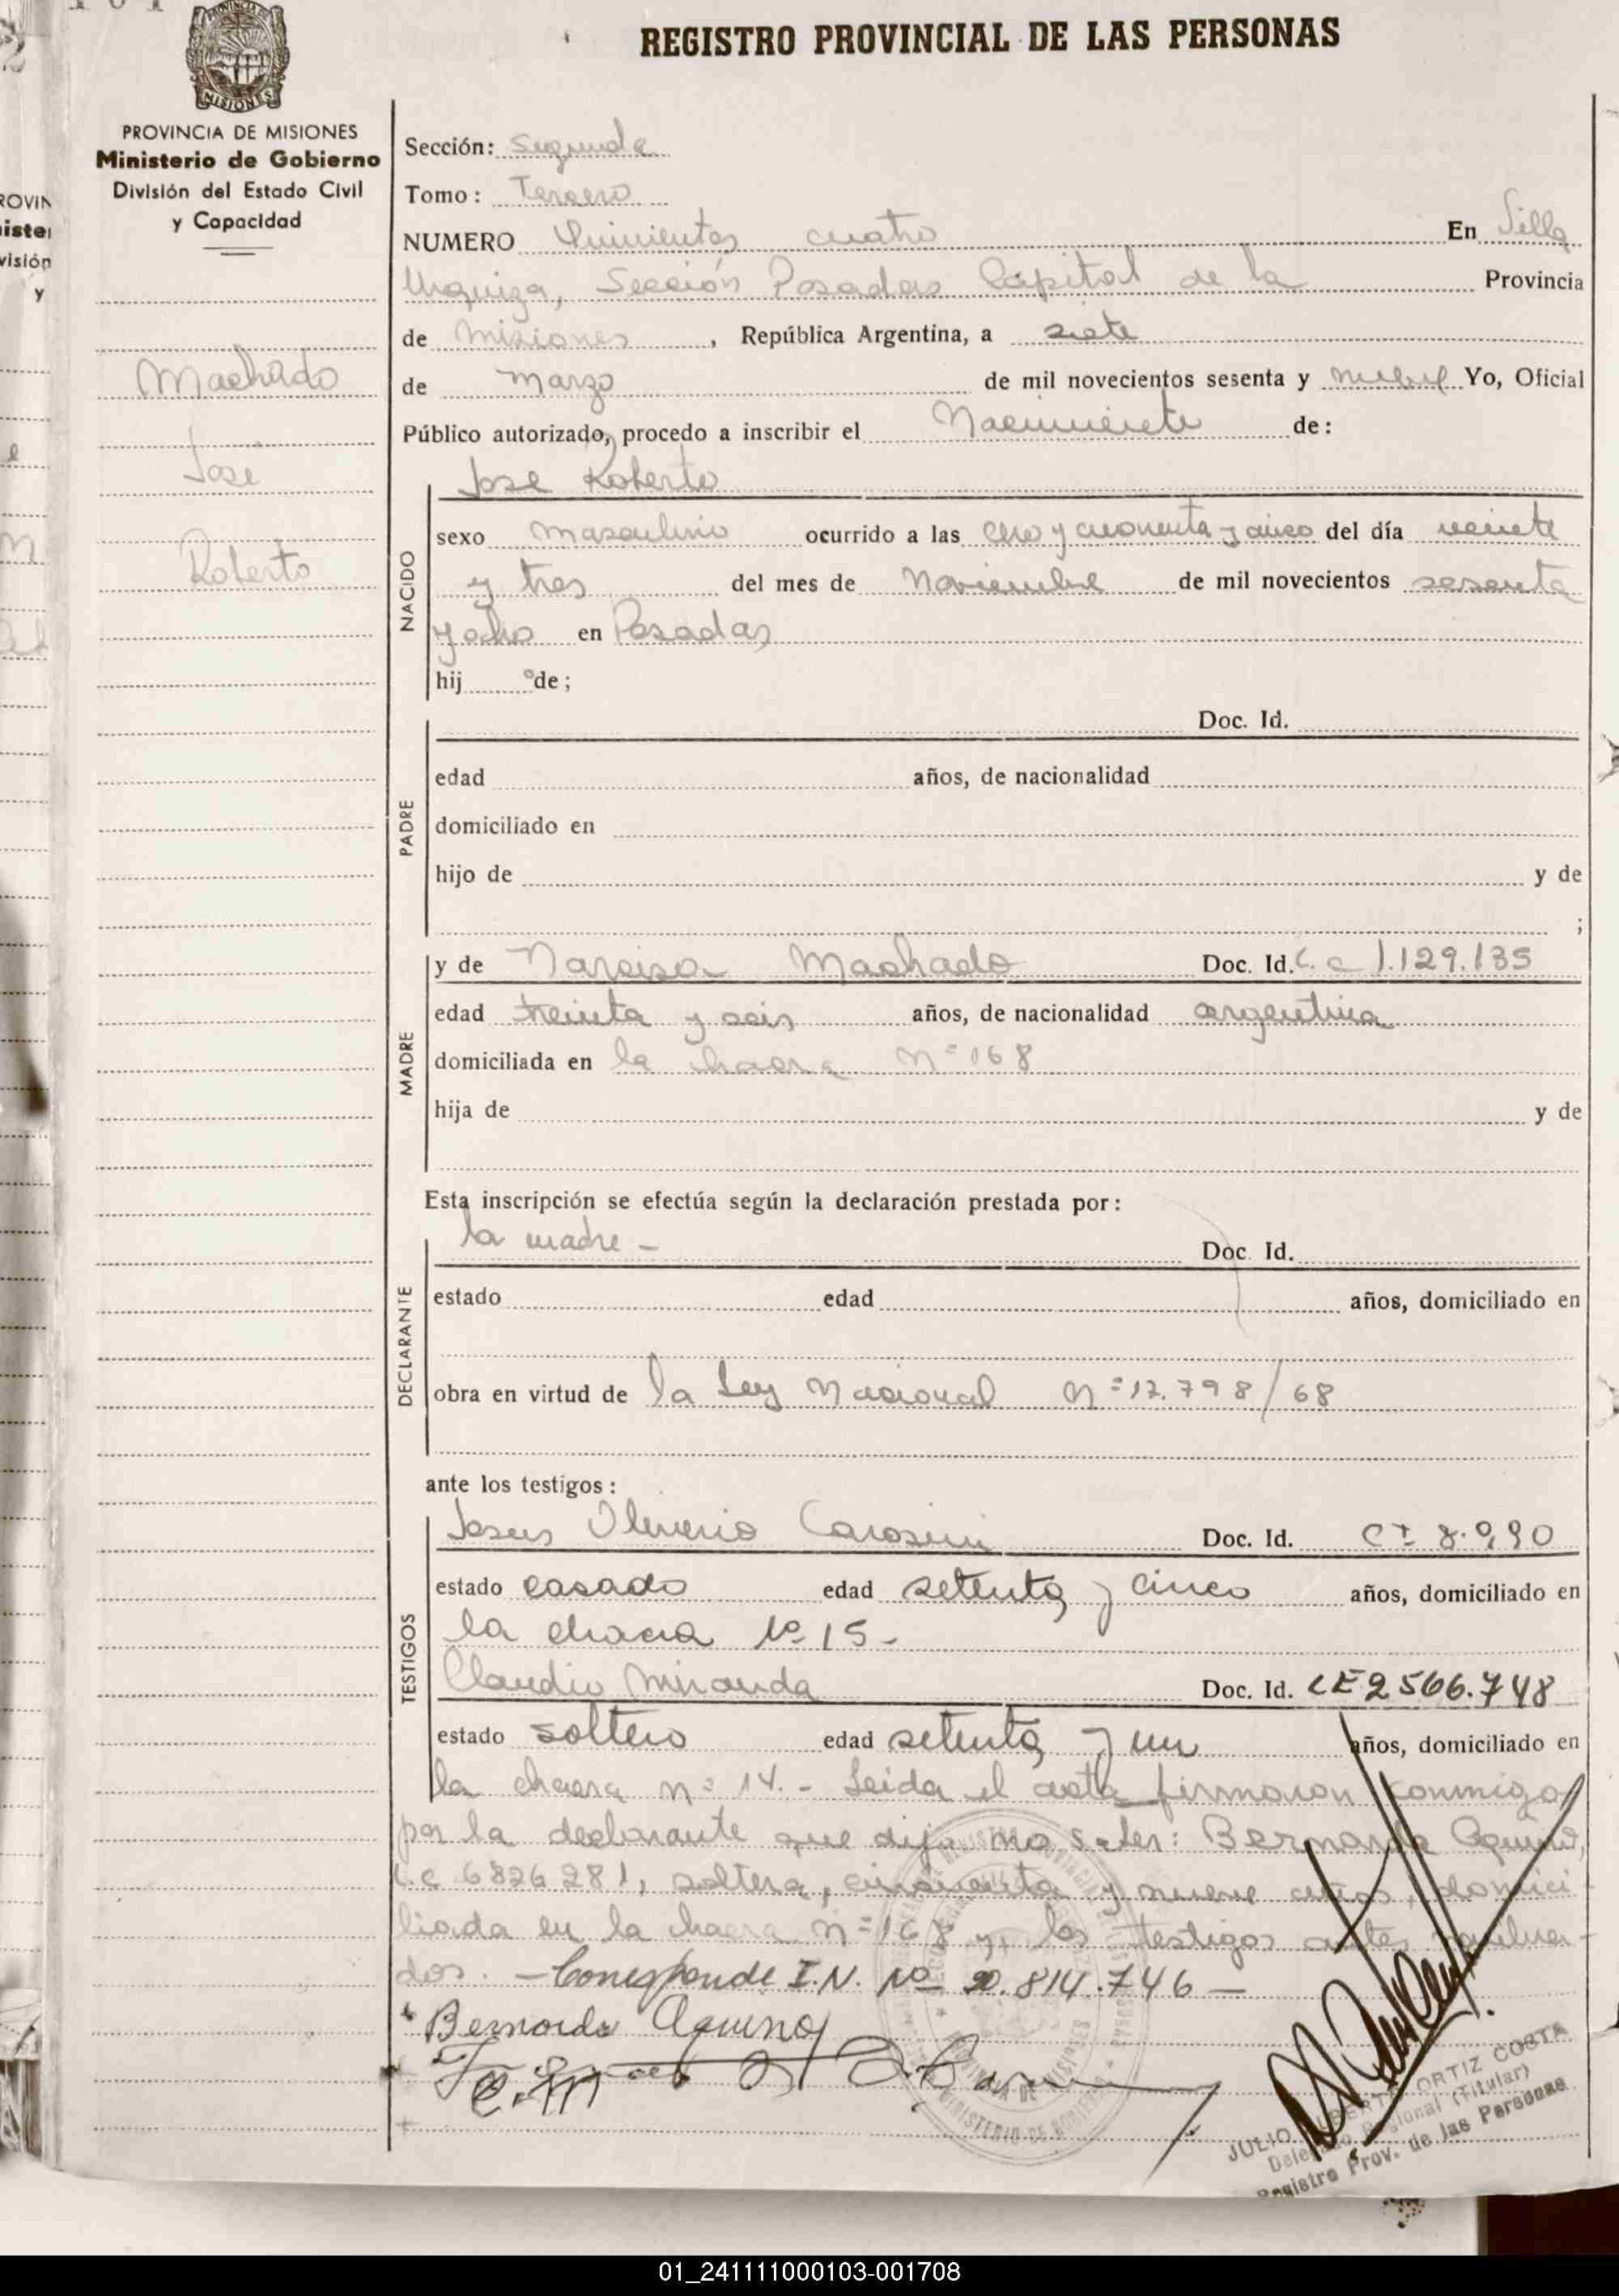 REGISTRO PROVINCIAL DE LAS PERSONAS
PROVINCIA DE MISIONES
Ministerio de Gobierno
División del Estado Civil
y Capacidad
Machado
José
Roberto
Sección: Segunda
Tomo: Tercero
NUMERO Quinientos cuatro En Villa
Urquiza, Sección Posadas Capital de la Provincia
de Misiones, República Argentina, a siete
de marzo de mil novecientos sesenta y nueve Yo, Oficial
Público autorizado, procedo a inscribir el Nacimiento de:
NACIDO
José Roberto
sexo masculino ocurrido a las y cuarenta y cinco del día veinte
y tres del mes de Noviembre de mil novecientos sesenta
y ocho en Posadas
hij o de;
PADRE
Doc. Id.
edad años, de nacionalidad
domiciliado en
hijo de y de
;
MADRE
y de Narcisa Machado Doc. Id. C. c 1.129.135
edad treinta y seis años, de nacionalidad argentina
domiciliada en la chacra nº 168
hija de y de
Esta inscripción se efectúa según la declaración prestada por:
DECLARANTE
la madre - Doc. Id.
estado edad años, domiciliado en
obra en virtud de la Ley Nacional nº 17.798/68
ante los testigos:
TESTIGOS
Jesus Oliverio Doc. Id. CI 8.990
estado casado edad setenta y cinco años, domiciliado en
la chacra Nº 15 -
Claudio Miranda Doc. Id. LE 2566.748
estado soltero edad setenta y un años, domiciliado en
la chacra nº 14. - Leida el acta firmaron conmigo
por la declarante que dijo no saber: Bernarda Aquino,
L.c 6826281, soltera, cincuenta y nueve años, domici
liada en la chacra nº 168 y los testigos antes
dos. - Corresponde I.N. Nº 20.814.746 -
Bernarda Aquino
JULIO ALBERTO ORTIZ COSTA
Delegado Regional (Titular)
Registro Prov. de las Personas
01_241111000103-001708